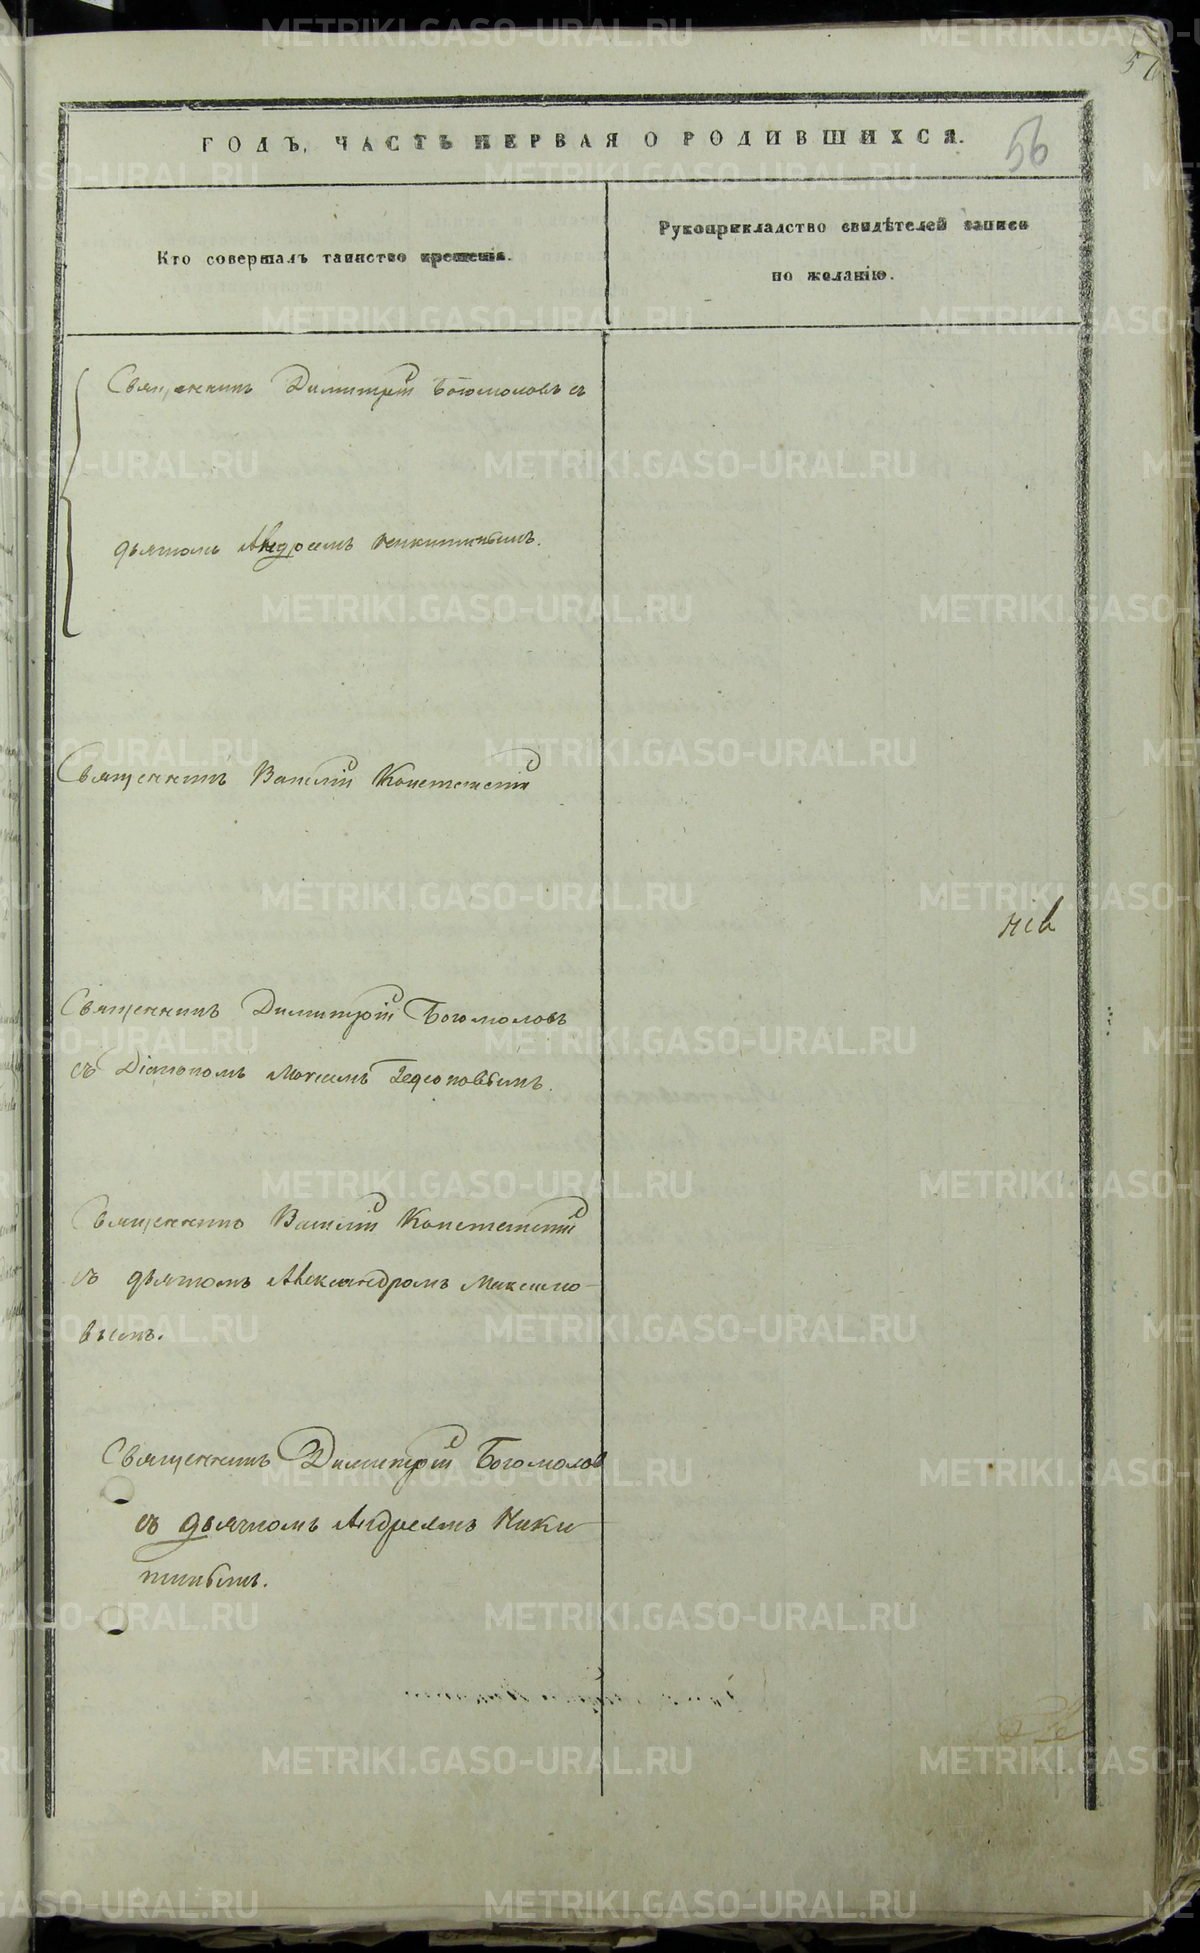 56
ГОДЪ, ЧАСТЬ ПЕРВАЯ О РОДИВШИХСЯ.
Кто совершалъ таинство крещенія.
Рукоприкладство свидѣтелей записи
по желанію.
Священникъ Димитрій Богомоловъ съ
дьячкомъ Андреемъ Никитинымъ.
Священникъ Василій
Священникъ Димитрій Богомоловъ
съ Діакономъ Гедеоновымъ.
Священникъ Василій
съ дьячкомъ Александромъ Максимо-
вымъ.
Священникъ Димитрій Богомоловъ
съ дьячкомъ Андреемъ Ники-
тинымъ.
METRIKI.GASO-URAL.RU